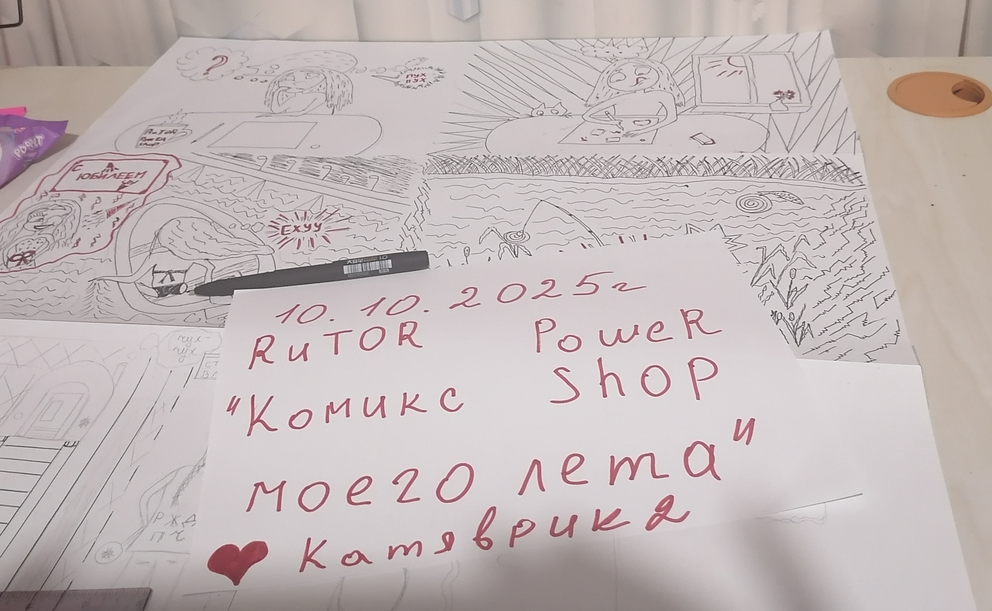 ?
ПУХ
ПУХ
RuTOR
POWER
SHOP
С
ЮБИЛЕЕМ
ЕХУУ
10.10.2025г
RuTOR PoweR
"Комикс ShoP
моего лета"
Катяврик2